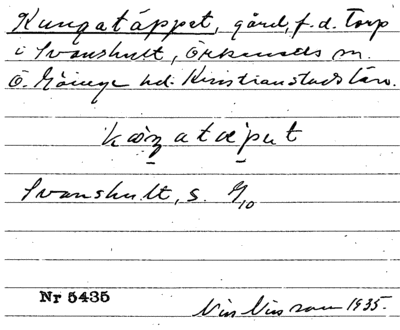 Kungatäppet, gård, f.d. Torp
i Svanshult, Örkeneds sn.
Ö. Göinge hd. Kristianstads län.
Svanshult, s. 9/10
Nr 5435
Nils Nilsson 1935.